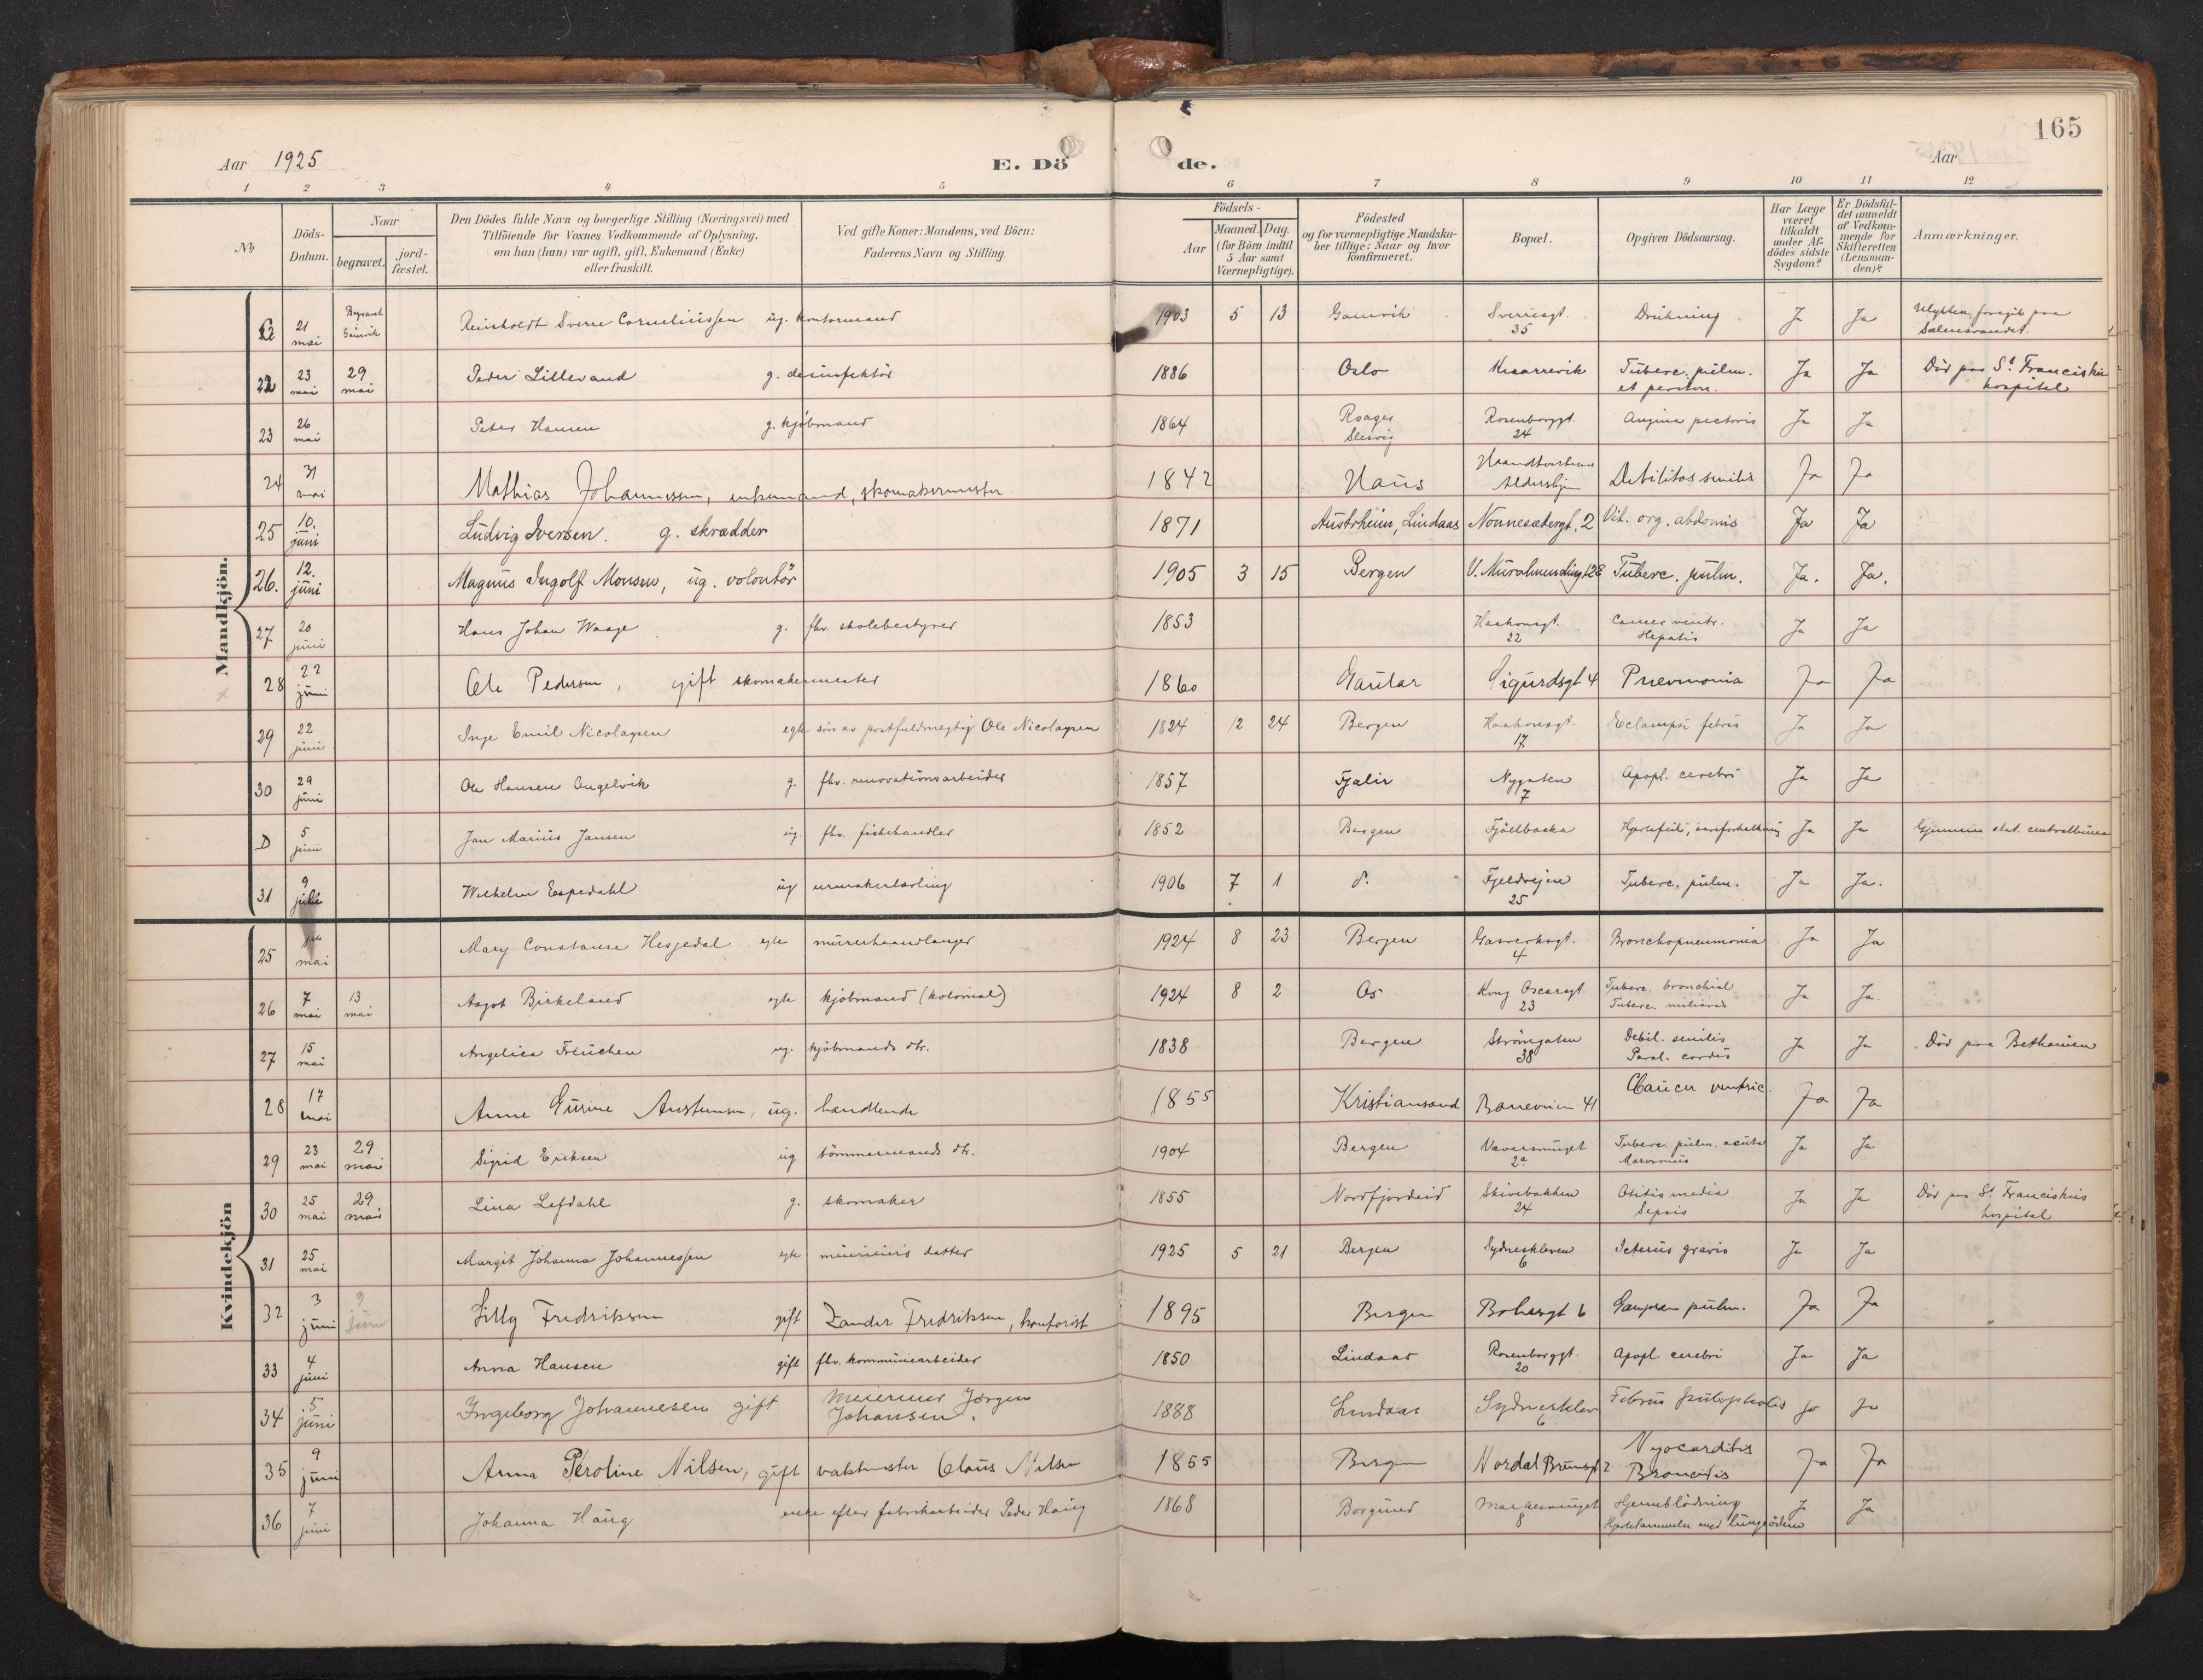 165
Aar 1925
E. Dö de.
Aar
1 2 3 4 5 6 7 8 9 10 11 12
No
Döds-Datum.
Naar
begravet.
jord-fæstet.
Den Dödes fulde Navn og borgerlige Stilling (Næringsvei) med
Tilföiende for Voxnes Vedkommende af Oplysning,
om han (hun) var ugift, gift, Enkemand (Enke)
eller fraskilt.
Ved gifte Koner: Mandens, ved Börn:
Faderens Navn og Stilling.
Födsels-
Aar
Maaned. Dag.
(for Börn indtil
5 Aar samt
Værnepligtige).
Födested
og for værnepligtige Mandska-
ber tillige: Naar og hvor
konfirmeret.
Bopæl.
Opgiven Dödsaarsag.
Har Læge
været
tilkaldt
under Af-
dödes sidste
Sygdom?
Er Dödsfal-
det anmeldt
af Vedkom-
mende for
Skifteretten
(Lensman-
den)?
Anmærkninger.
Mandkjön.
21 mai Begravet Gamvik Reinholdt Sverre Corneliussen ug. kontormand 1903 5 13 Gamvik Sverresgt. 35 Drukning Ja Ja Ulykken foregik paa Sælensvandet.
22 23 mai 29 mai Peder Lillevand g. desinfektör 1886 Oslo Tuberc. pulm. et periton. Ja Ja Död paa St Franciskus hospital
23 26 mai Peter Hansen g. kjöbmand 1864 Roager Slesvig Rosenborggt. 24 Angina pectoris Ja Ja
24 31 mai Mathias Johannessen, enkemand, skomakermester. 1842 Haus Debilitas senilis Ja Ja
25 10. juni Ludvig Iversen. g. skrædder 1871 Austrheim, Lindaas Nonnesætergt. 2 Vit. org. abdomis Ja Ja
26. 12. juni Magnus Ingolf Monsen, ug. volontör 1905 3 15 Bergen V. Muralmending 12 Tuberc. pulm. Ja. Ja.
27 20 juni Hans Johan Waage g. fhv. skolebestyrer 1853 Haakonsgt. 22 Cancer ventr. Hepatis Ja Ja
28 22 juni Ole Pedersen, gift skomakermester 1860 Gaular Sigurdsgt 4 Pneumonia Ja Ja
29 22 juni Inge Emil Nicolaysen egte sön av postfuldmegtig Ole Nicolaysen 1824 12 24 Bergen Haakonsgt. 17 Eclampsi febris Ja Ja
30 29 juni Ole Hansen Engelvik g. fhv. renovationsarbeider 1857 Fjaler Nygaten 7 Apopl. cerebri Ja Ja
D 5 juni Jan Marius Jansen ug. fhv. fiskehandler 1852 Bergen Fjöllbacka Hjertefeil, aareforkalkning Ja Ja Gjennem stat. centralbureau
31 9 juli Wilhelm Espedahl ug urmakerlærling 1906 7 1 d. Fjeldveien 25 Tuberc. pulm. Ja Ja.
Kvindekjön
25 mai Mary Constanse Hesjedal egte murerhaandlanger 1924 8 23 Bergen Gasverksgt. 4 Bronchopneumonia Ja Ja
26 7 mai 13 mai Aagot Birkeland egte kjöbmand (kolonial) 1924 8 2 Os Kong Oscarsgt. 23 Tuberc. bronchial. Tuberc. miliaris Ja Ja.
27 15 mai Angelica Freuchen ug. kjöbmands dtr. 1838 Bergen Strömgaten 38 Debil. senilis Paral. cordis Ja Ja Död paa Bethanien
28 17 mai Anne Gurine Austensen, ug. handlende 1855 Kristiansand Baneveien 41 Cancer ventric. Ja Ja
29 23 mai 29 mai Sigrid Eriksen ug tömmermands dtr. 1904 Bergen Væversmuget 2a Tuberc. pulm. acuta Ja Ja
30 25 mai 29 mai Lina Lefdahl g. skomaker 1855 Nordfjordeid Skivebakken 24 Otitis media Sepsis Ja Ja Död paa St Franciskus hospital
31 25 mai Margit Johanna Johannessen egte datter 1925 5 21 Bergen Sydneskleven 6 Icterus gravis Ja Ja
32 3 juni 9 juni Lilly Fredriksen gift Zander Fredriksen, kontorist 1895 Bergen 6 pulm. Ja Ja
33 4 juni Anna Hansen gift fhv. kommunearbeider 1850 Lindaas Rosenborggt. 20 Apopl. cerebri Ja Ja
34 5 juni Ingeborg Johannesen gift Jörgen Johansen. 1888 Lindaas Sydnesklev 6 Ja Ja
35 9 juni Anna Peroline Nilsen, gift vaktmester Claus Nilsen 1855 Bergen Nordal Brunsgt 2 Myocarditis Broncitis Ja Ja
36 7 juni Johanna Haug enke efter fabrikarbeider Peder Haug 1868 Borgund Markesmuget 8 Hjerneblödning Hjertelammelse med lungeödem Ja Ja